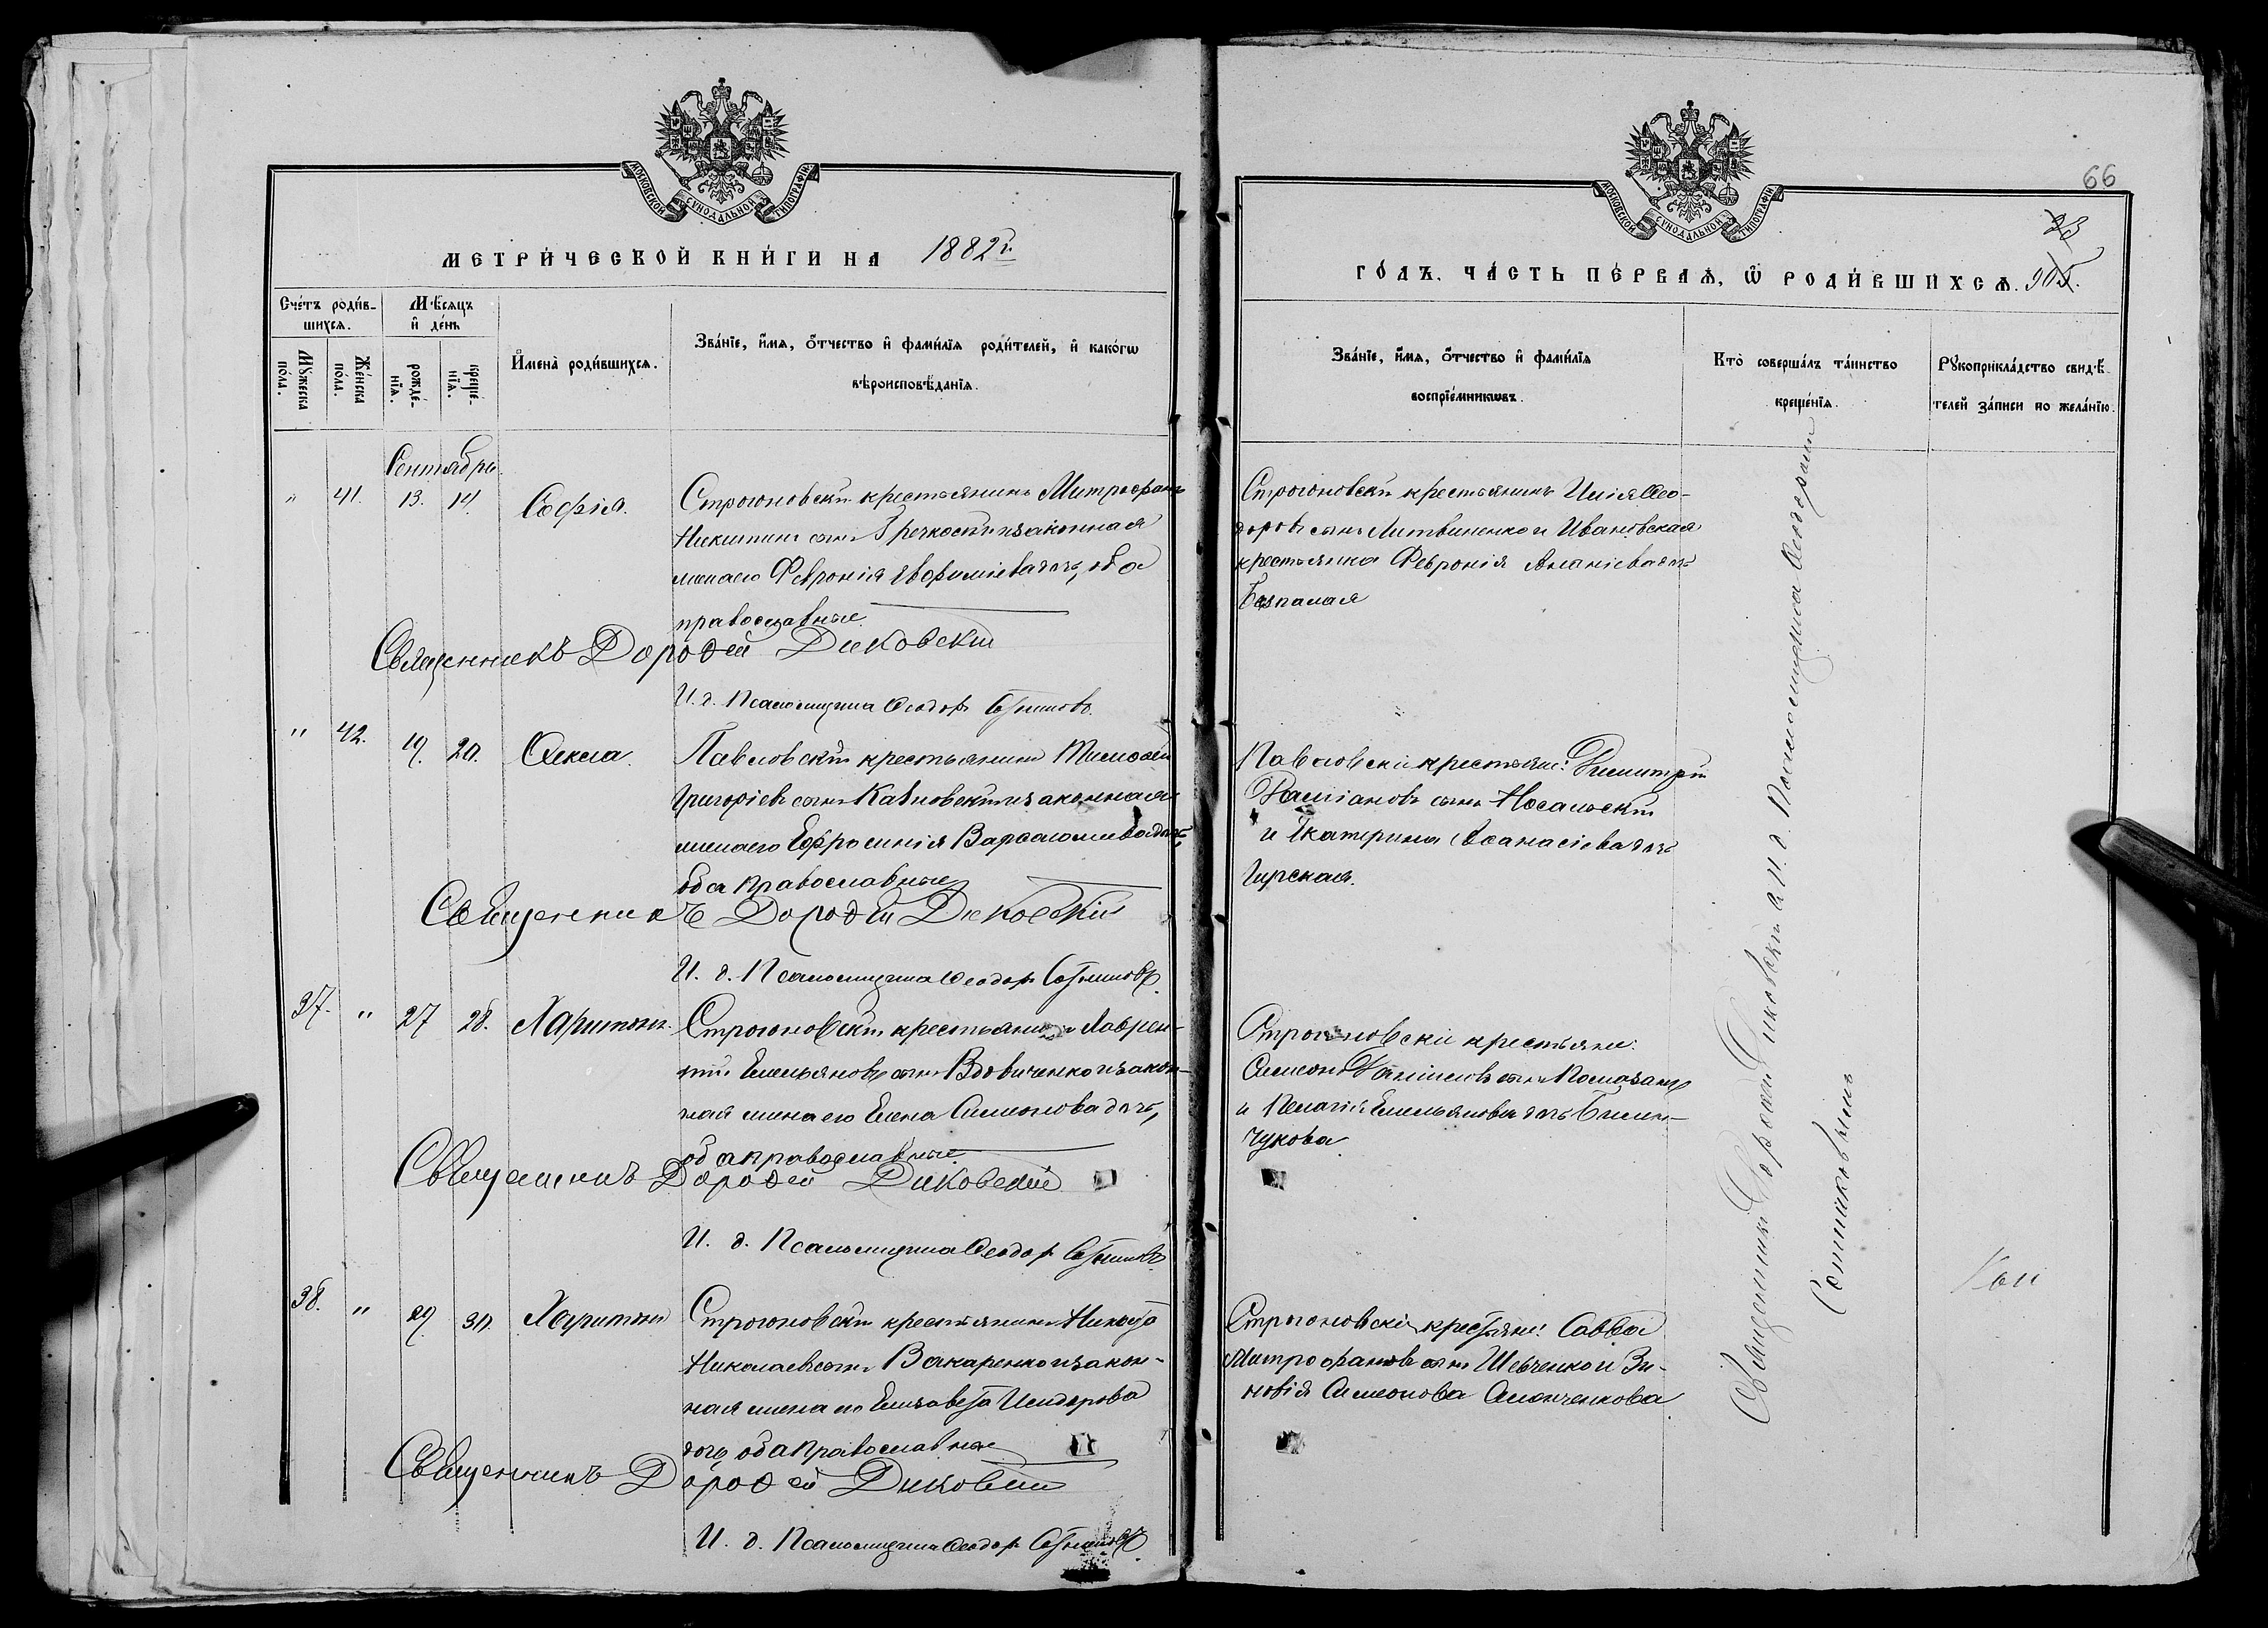 МОСКОВСКОЙ СУНОДАЛЬНОЙ ТИПОГРАФІИ
МЕТРИ́ЧЕСКОЙ КНИ́ГИ НА 1882 г.
Сче́тъ роди́в-
шихсѧ.
Мѣ́сѧцъ
и҆ де́нь
Мꙋ́жеска
по́ла.
Же́нска
по́ла.
рожде́-
нїѧ.
креще́-
нїѧ.
И҆мена̀ роди́вшихсѧ.
Зва́нїе, и҆́мѧ, ѻ҆́тчество и҆ фами́лїѧ роди́телей, и҆ како́гѡ
вѣроисповѣ́данїѧ.
Сентябрь.
" 41. 13. 14. Софія. Строгоновскій крестьянинъ Митрофанъ
Никитинъ сынъ Гречко и законная
жена его Февронія Евфиміева дочь, оба
православные
Священникъ Дороѳей Диковскій
И. д. Псаломщика Ѳеодоръ Сотниковъ.
" 42. 19. 20. Ѳекла. Павловскій крестьянинъ Тимоѳей
Григоріевъ сынъ и законная
жена его Ефросинія Варѳоломеева дочь,
оба православные
Священникъ Дороѳей Диковскій
И. д. Псаломщика Ѳеодоръ Сотниковъ.
37. " 27 28. Харитонъ. Строгоновскій крестьянинъ Лаврен-
тій Емельяновъ сынъ Вдовиченко и закон-
ная жена его Елена Симеонова дочь,
оба православные
Священникъ Дороѳей Диковскій
И. д. Псаломщика Ѳеодоръ Сотниковъ.
38. " 29. 30. Харитонъ Строгоновскій крестьянинъ Никита
Николаевъ сынъ Вакаренко и закон-
ная жена его Елизавета Исидорова
дочь, оба православные
Священникъ Дороѳей Диковскій
И. д. Псаломщика Ѳеодоръ Сотниковъ
66
МОСКОВСКОЙ СУНОДАЛЬНОЙ ТИПОГРАФІИ
ГО́ДЪ. ЧА́СТЬ ПЕ́РВАѦ, Ѡ҆ РОДИ́ВШИХСѦ.
Зва́нїе, и҆́мѧ, ѻ҆́тчество и҆ фами́лїѧ
воспрїе́мникѡвъ.
Кто̀ соверша́лъ та́инство
креще́нїѧ.
Рꙋкоприкла́дство свидѣ́-
телей за́писи по жела́нїю.
Строгоновскій крестьянинъ Илія Ѳео-
доровъ сынъ Литвиненко и Ивановская
крестьянка Февронія Ананіева дочь
Безпалая
Павловскіе крестьяне: Димитрій
Даміановъ сынъ Носальскій
и Екатерина Аѳанасіева дочь
Гирская.
Строгоновскіе крестьяне:
Симеонъ Даніиловъ сынъ Помазанъ
и Пелагія Емельянова дочь
чукова.
Строгоновскіе крестьяне: Савва
Митрофановъ сынъ Шевченко и Зи-
новія Симеонова
Священникъ Дороѳей Диковскій и И. д. Псаломщика Ѳеодоромъ
Сотниковымъ